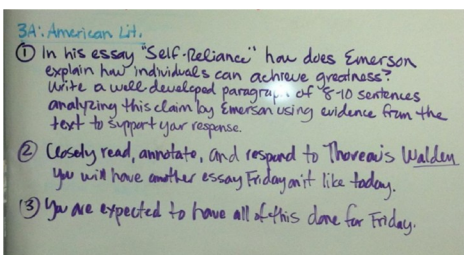 3A: American Lit.
① In his essay "Self-Reliance" how does Emerson
explain how individuals can achieve greatness?
Write a well-developed paragraph of 8-10 sentences
analyzing this claim by Emerson using evidence from the
text to support your response.
② Closely read, annotate, and respond to Thoreau's Walden
You will have another essay Friday on it like today.
③ You are expected to have all of this done for Friday.